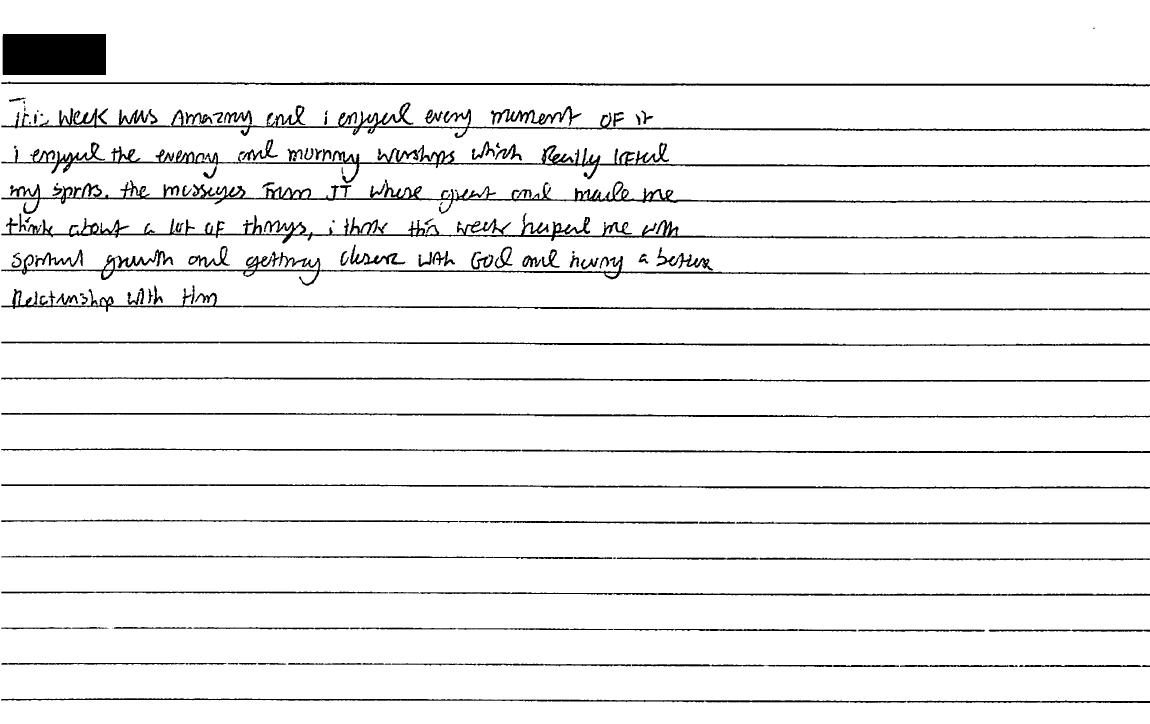 This week was Amazing and i enjoyed every moment OF it
i enjoyed the evening and morning worships which Really lifted
my spirits. the messages From JT where great and made me
think about a lot OF things, i think this week helped me with
spiritual growth and getting closere with God and having a better
Relationship with Him